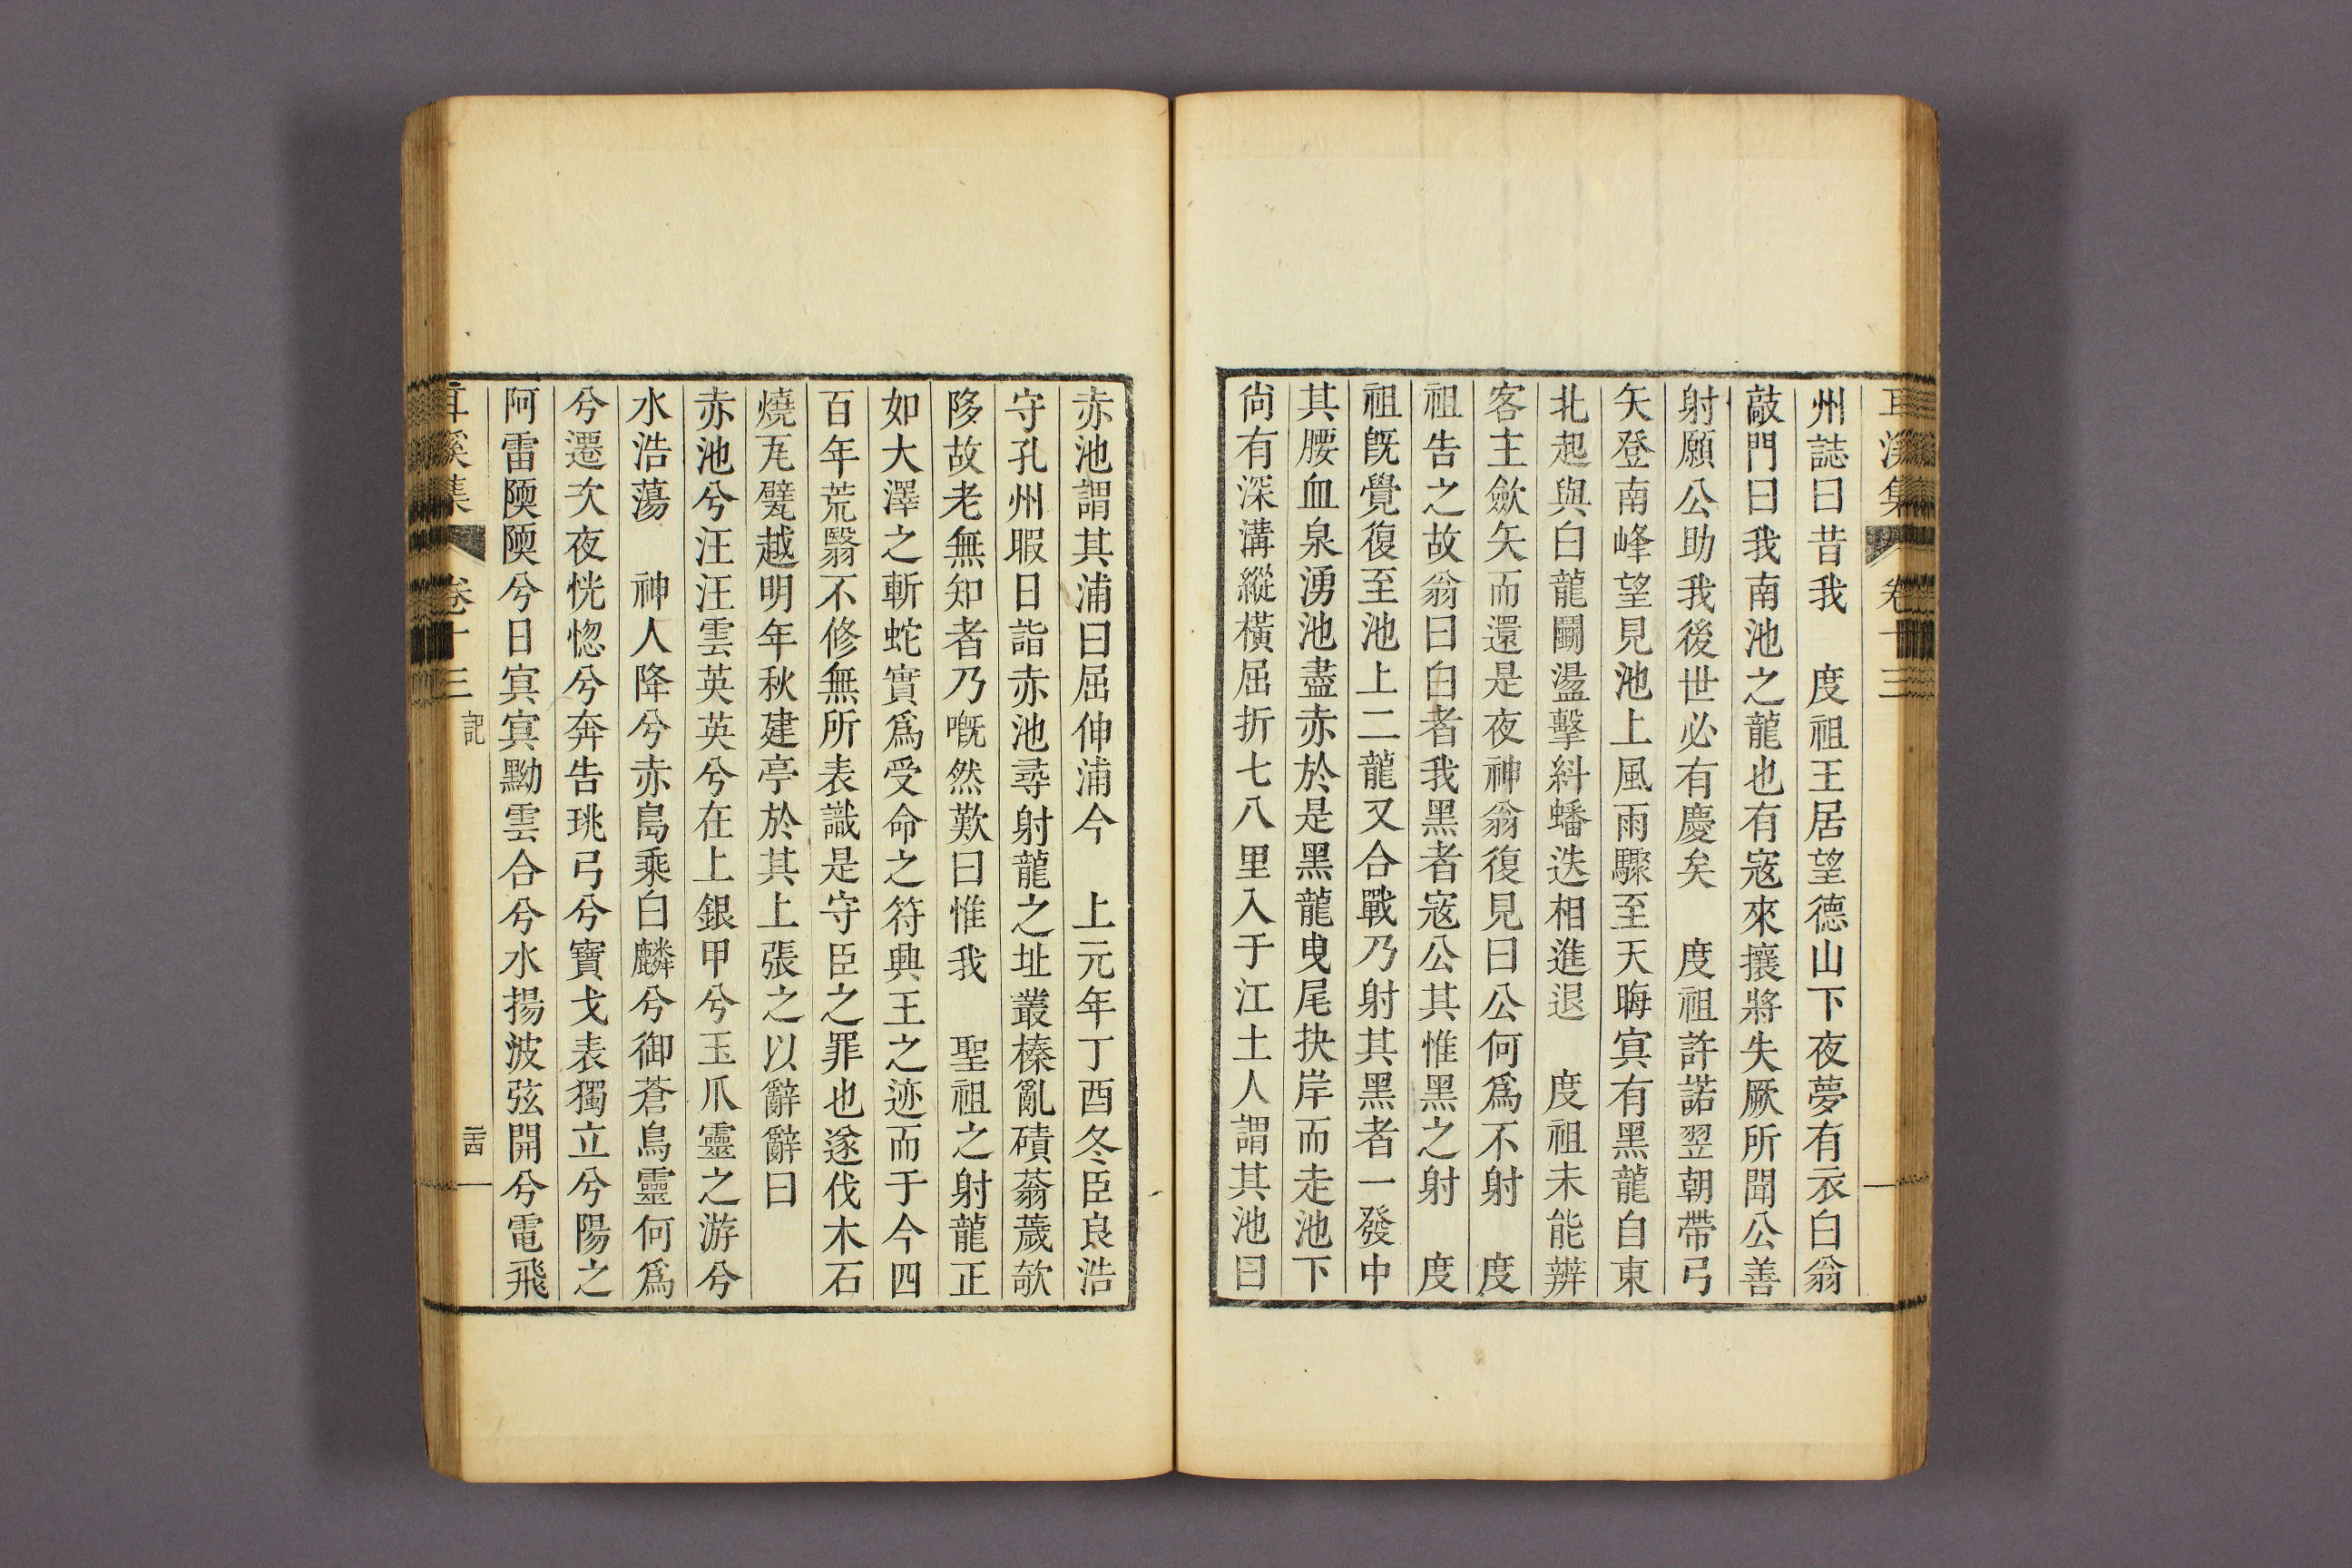 耳溪集 卷十三
州誌曰昔我　度祖王居望德山下夜夢有衣白翁
敲門曰我南池之龍也有寇來攘將失厥所聞公善
射願公助我後世必有慶矣　度祖許諾翌朝帶弓
矢登南峰望見池上風雨驟至天晦冥有黑龍自東
北起與白龍鬪盪擊紏蟠迭相進退　度祖未能辨
客主歛矢而還是夜神翁復見曰公何爲不射　度
祖告之故翁曰白者我黑者寇公其惟黑之射　度
祖旣覺復至池上二龍又合戰乃射其黑者一發中
其腰血泉湧池盡赤於是黑龍曳尾抉岸而走池下
尙有深溝縱橫屈折七八里入于江土人謂其池曰
赤池謂其浦曰屈伸浦今　上元年丁酉冬臣良浩
守孔州暇日詣赤池尋射龍之址叢榛亂磧蓊薉欹
陊故老無知者乃嘅然歎曰惟我　聖祖之射龍正
如大澤之斬蛇實爲受命之符興王之迹而于今四
百年荒翳不修無所表識是守臣之罪也遂伐木石
燒瓦甓越明年秋建亭於其上張之以辭辭曰
赤池兮汪汪雲英英兮在上銀甲兮玉爪靈之游兮
水浩蕩　神人降兮赤島乘白麟兮御蒼烏靈何爲
兮遷次夜恍惚兮奔告珧弓兮寶戈表獨立兮陽之
阿雷陾陾兮日冥冥黝雲合兮水揚波弦開兮電飛
耳溪集 卷十三 記 二十四